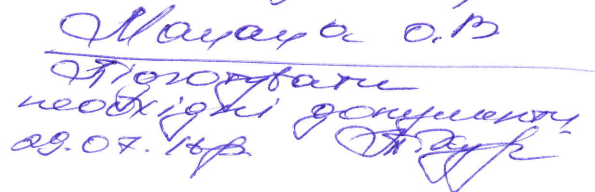 О.В
Підготувати
необхідні документи
09.07.18р.